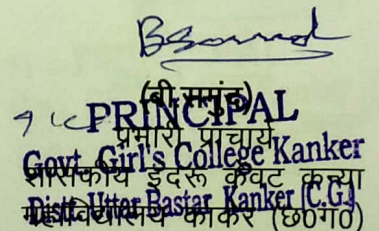 (बी.समुंद)
PRINCIPAL
प्रभारी प्राचार्य
Govt. Girl's College Kanker
शासकीय इंदरू केंवट कन्या
Distt. Uttar Bastar Kanker (C.G.)
महाविद्यालय कांकेर (छ0ग0)